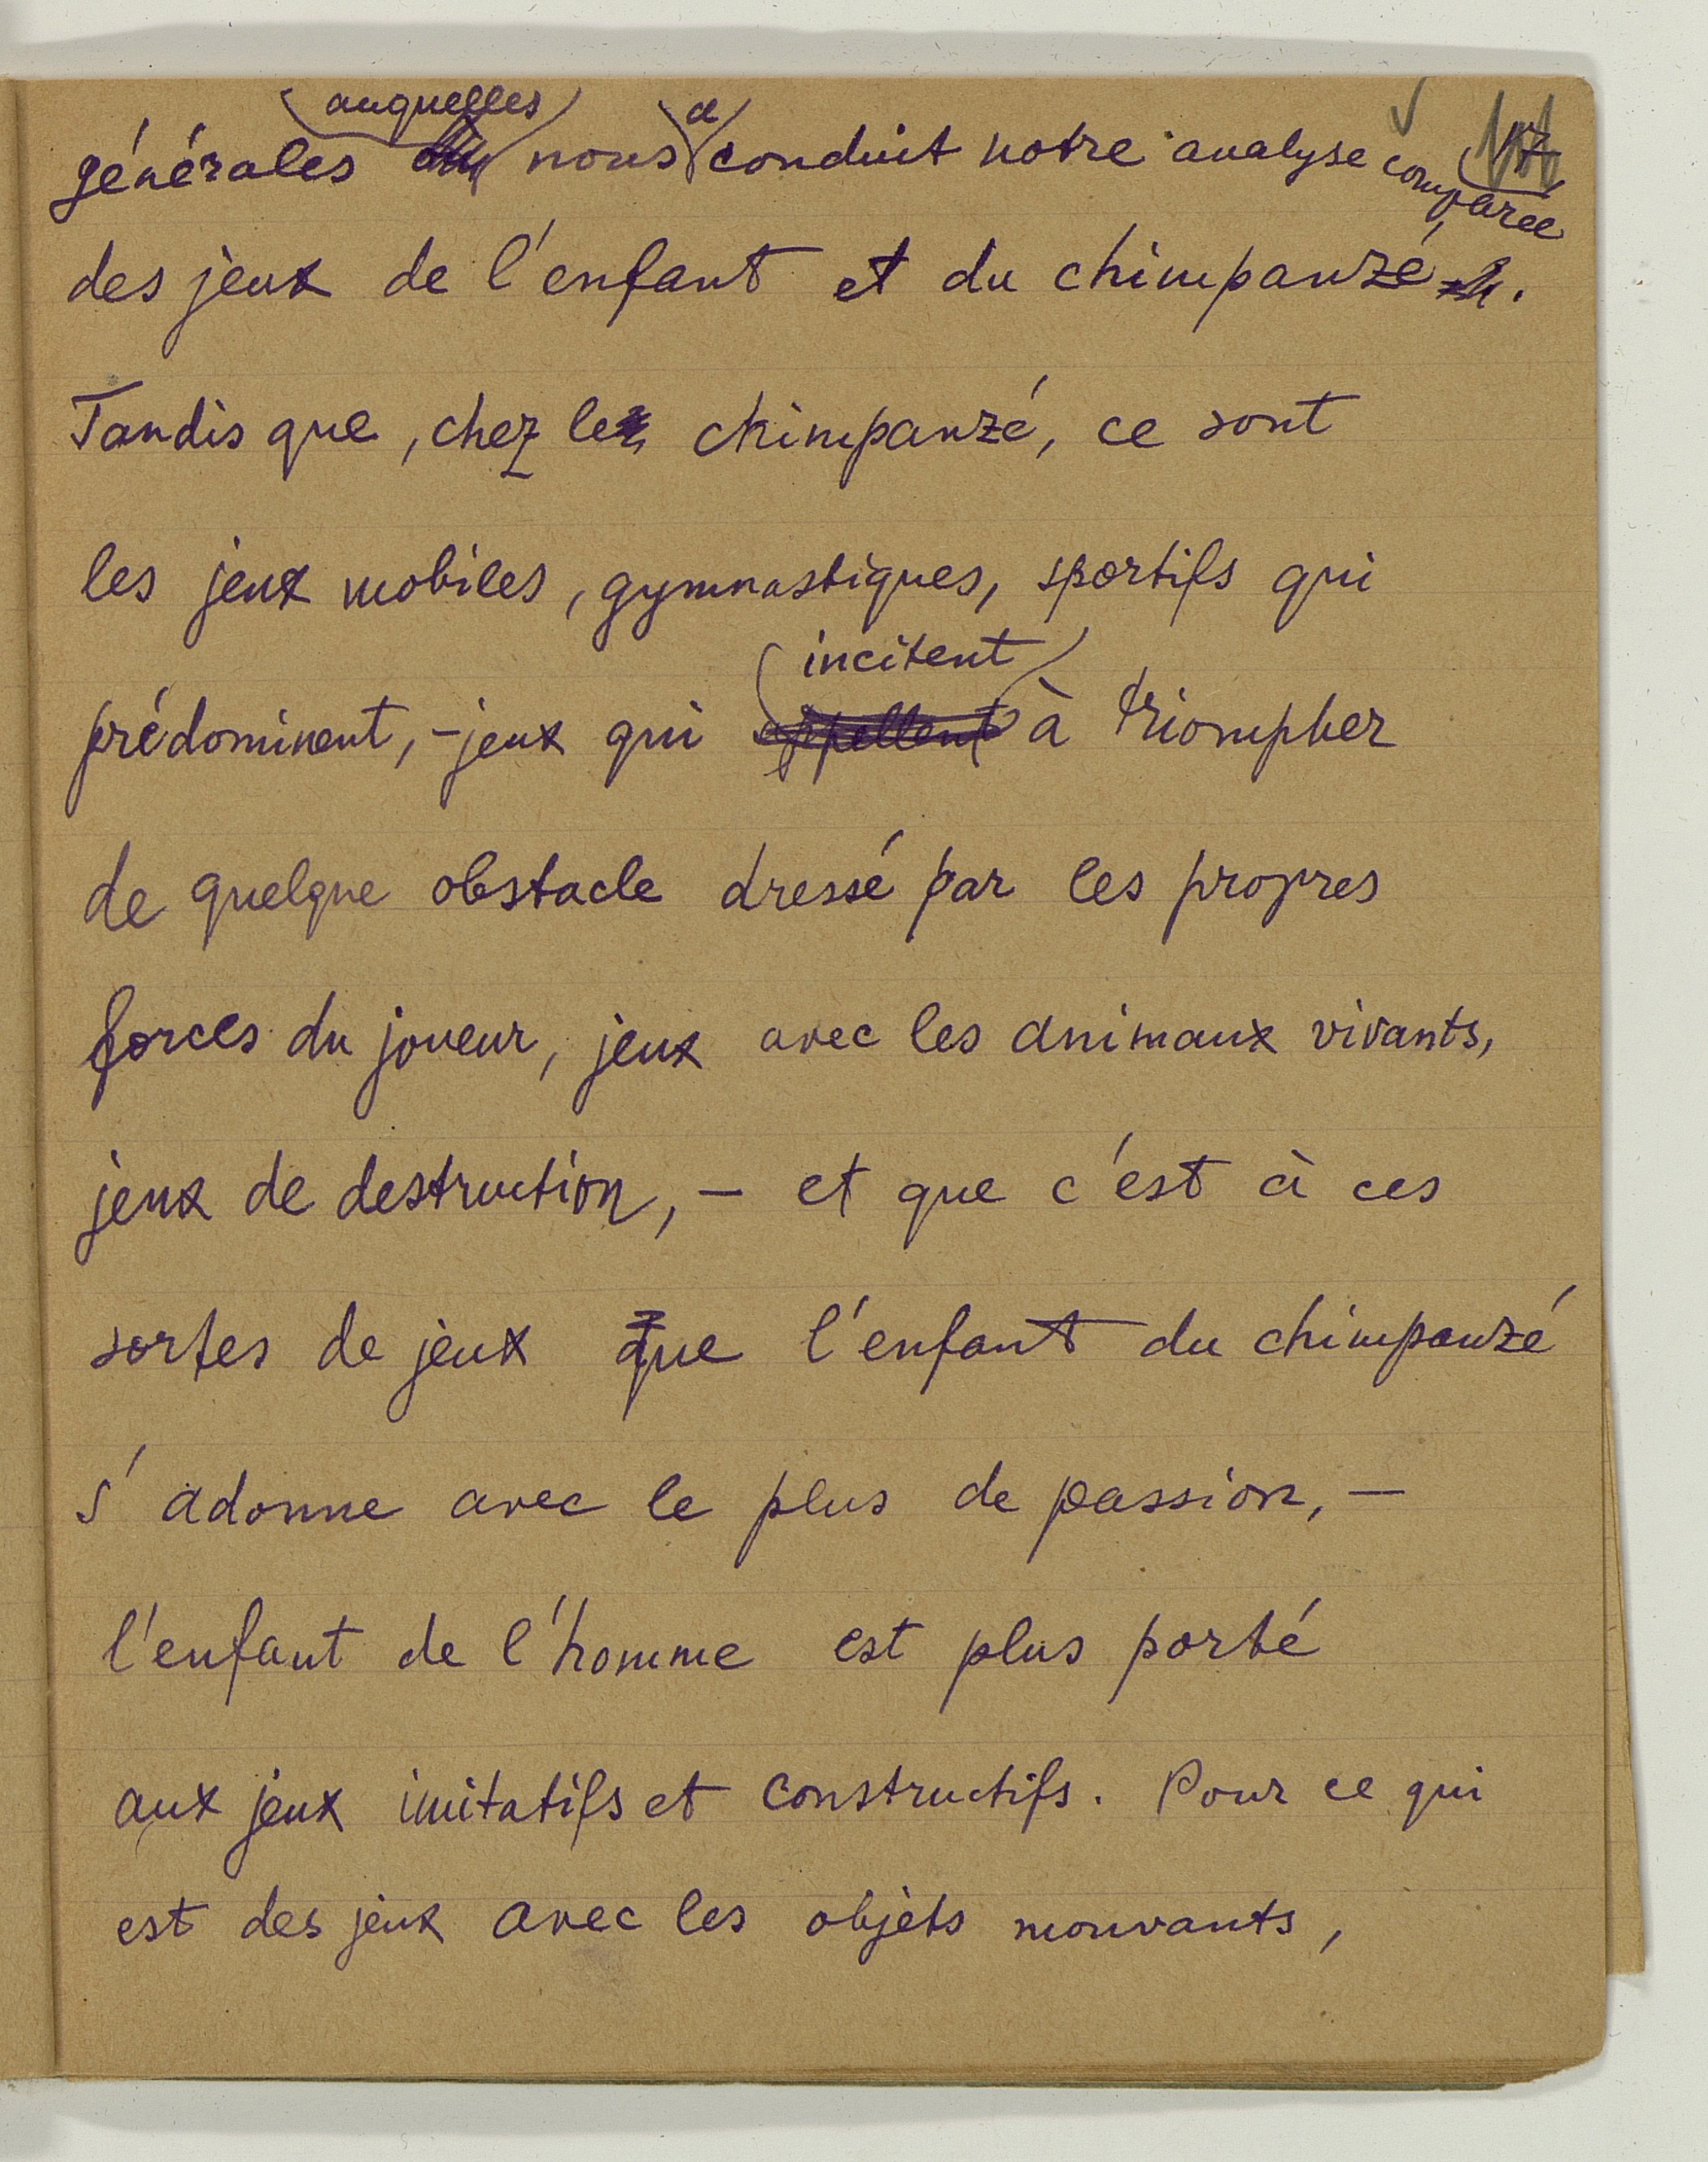 générales auquelles nous a conduit notre analyse comparée
des jeux de l'enfant et du chimpanzé.
Tandis que, chez le chimpanzé, ce sont
les jeux mobiles, gymnastiques, sportifs qui
prédominent, - jeux qui incitent à triompher
de quelque obstacle dressé par les propres
forces du joueur, jeux avec les animaux vivants,
jeux de destruction, - et que c'est à ces
sortes de jeux que l'enfant du chimpanzé
s'adonne avec le plus de passion, -
l'enfant de l'homme est plus porté
aux jeux imitatifs et constructifs. Pour ce qui
est des jeux avec les objets mouvants,